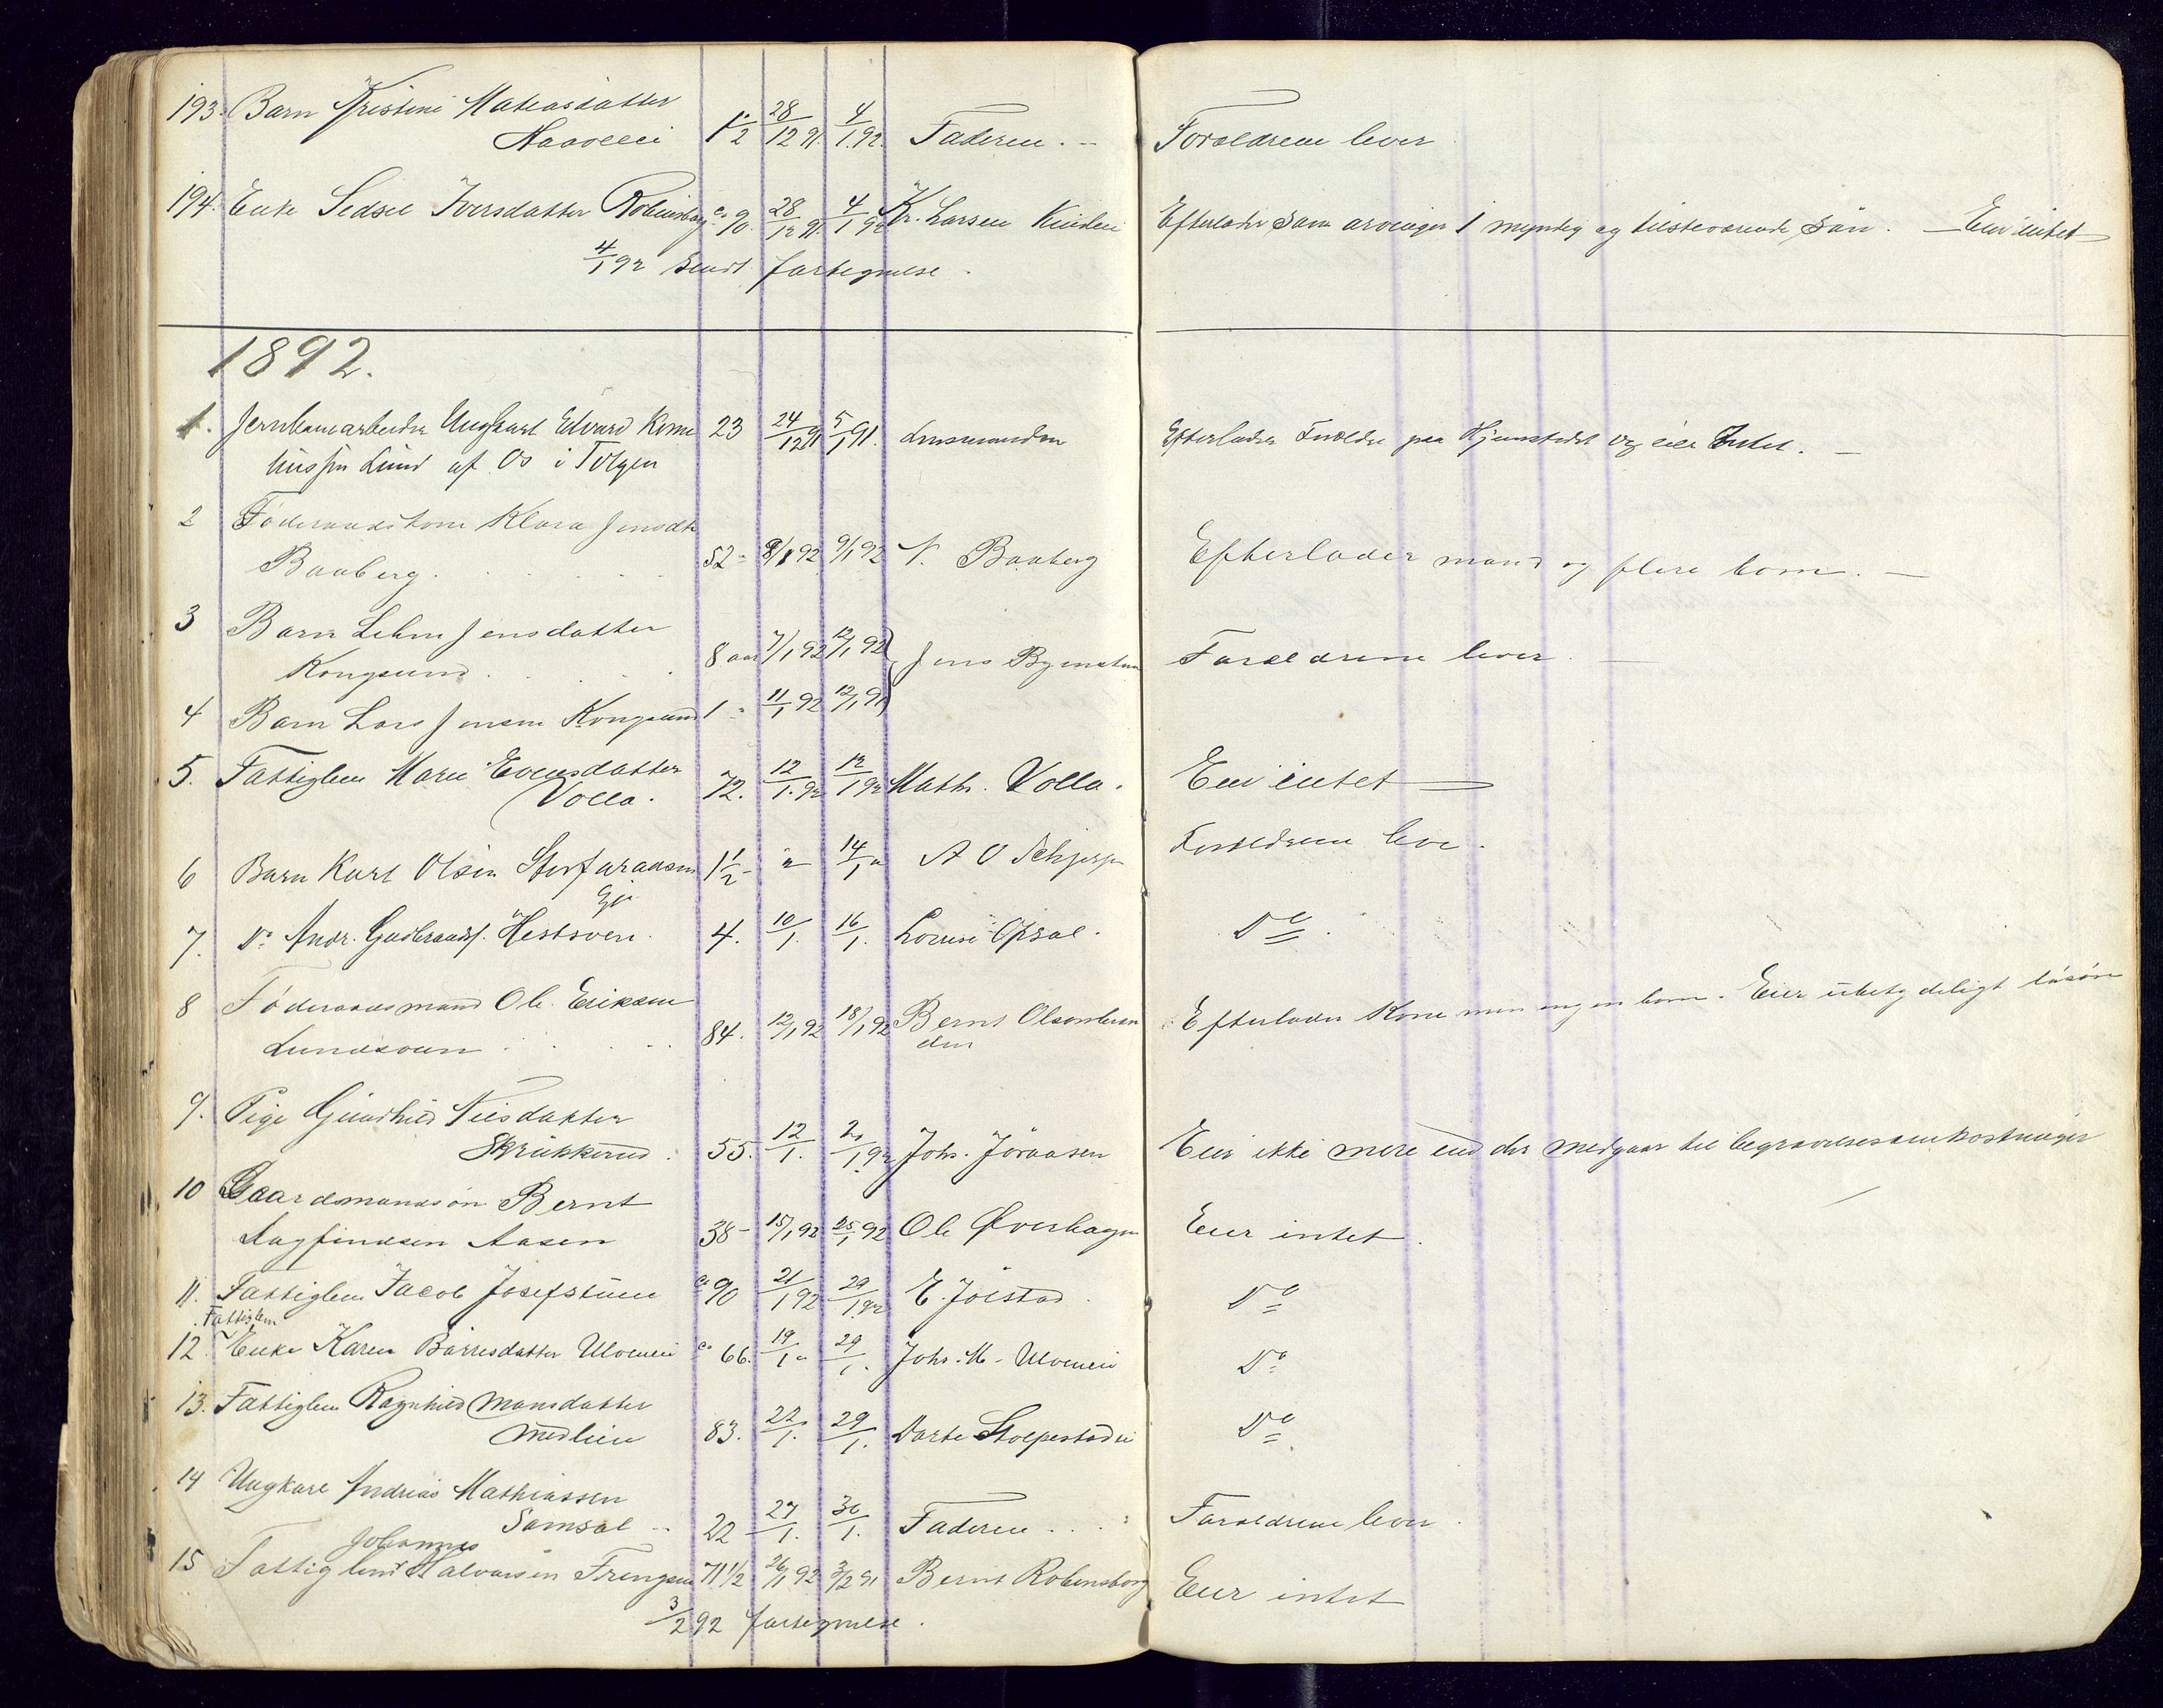 193. Barn Kristine Mateasdatter
Haavelei 1 1/2 28/12 91. 4/1.92. Faderen. Foreldrene lever
194. Enke Sedsel Iversdatter Robensborg ca 90. 28/12 91. 4/1 92 Kr. Larsen Kinden Efterlader som arvinger 1 myndig og tilsteværende Søn. Eier intet
4/1 92 sendt fortegnelse.
1892.
1. Jernbanearbeider Ungkarl Edvard 23 24/12 91 5/1 91. Lensmanden Efterlader Foreldre paa Hjemstedet og eier Intet.
Lund af Os i Tolgen
2 Føderaadskone Klara Jensdtr
Baaberg. 52 8/1 92 9/1 92 N. Baaberg Efterlader mand og flere born.
3 Barn Jensdatter
Kongsund. 8 aar 7/1 92 12/1 92 Jens Foraeldrene lever.
4 Barn Lars Jensen Kongsund 1 " 11/1 92 12/1 91
5. Fattiglem Mari Evensdatter
Volla. 72. 12/1.92 12/1 92 Math. Volla. Eier intet
6 Barn Karl Olsen 1 1/2 " 14/1 " A O Foreldrene lever.
7. Do Andr. Gudbrands. Hestsveen. 4. 10/1. 16/1. Lovise Opsal. Do.
8 Føderaadsmand Ole Eriksen
Lundsveen 84. 12/1 92 18/1 92 Bernt Efterlader Kone men ingen born. Eier ubetydeligt løsøre
9. Pige Gunhild Nilsdatter
Skrukkerud. 55. 12/1. 21/1 92 Johs. Joraasen Eier ikke mere end der medgaar til begravelsesomkostninger
10 Gaardsmandsøn Bernt
Dagfindsen Aasen 38 15/1 92 25/1 92 Ole Øverhagen Eier intet.
11. Fattiglem Jacob Josefstuen ca 90 21/1 92 29/1 92 E. Jolstad. Do
Fattiglem
12. Enke Karen Børresdatter Ulvenei ca 66. 19/1 " 29/1. Johs. M. Ulvenei Do
13. Fattiglem Ragnhild Monsdatter
Medlien 83. 22/1. 29/1. Dorte Stolpestadei Do.
14 Ungkarl Andreas Mathiassen
Samsal 22 27/1. 30/1. Faderen Foraeldrene lever.
Johannes
15 Fattiglem Halvorsen Frengsen 71 1/2 26/1 92 3/2 91 Bernt Robensborg Eier intet
3/2 92 fortegnelse.